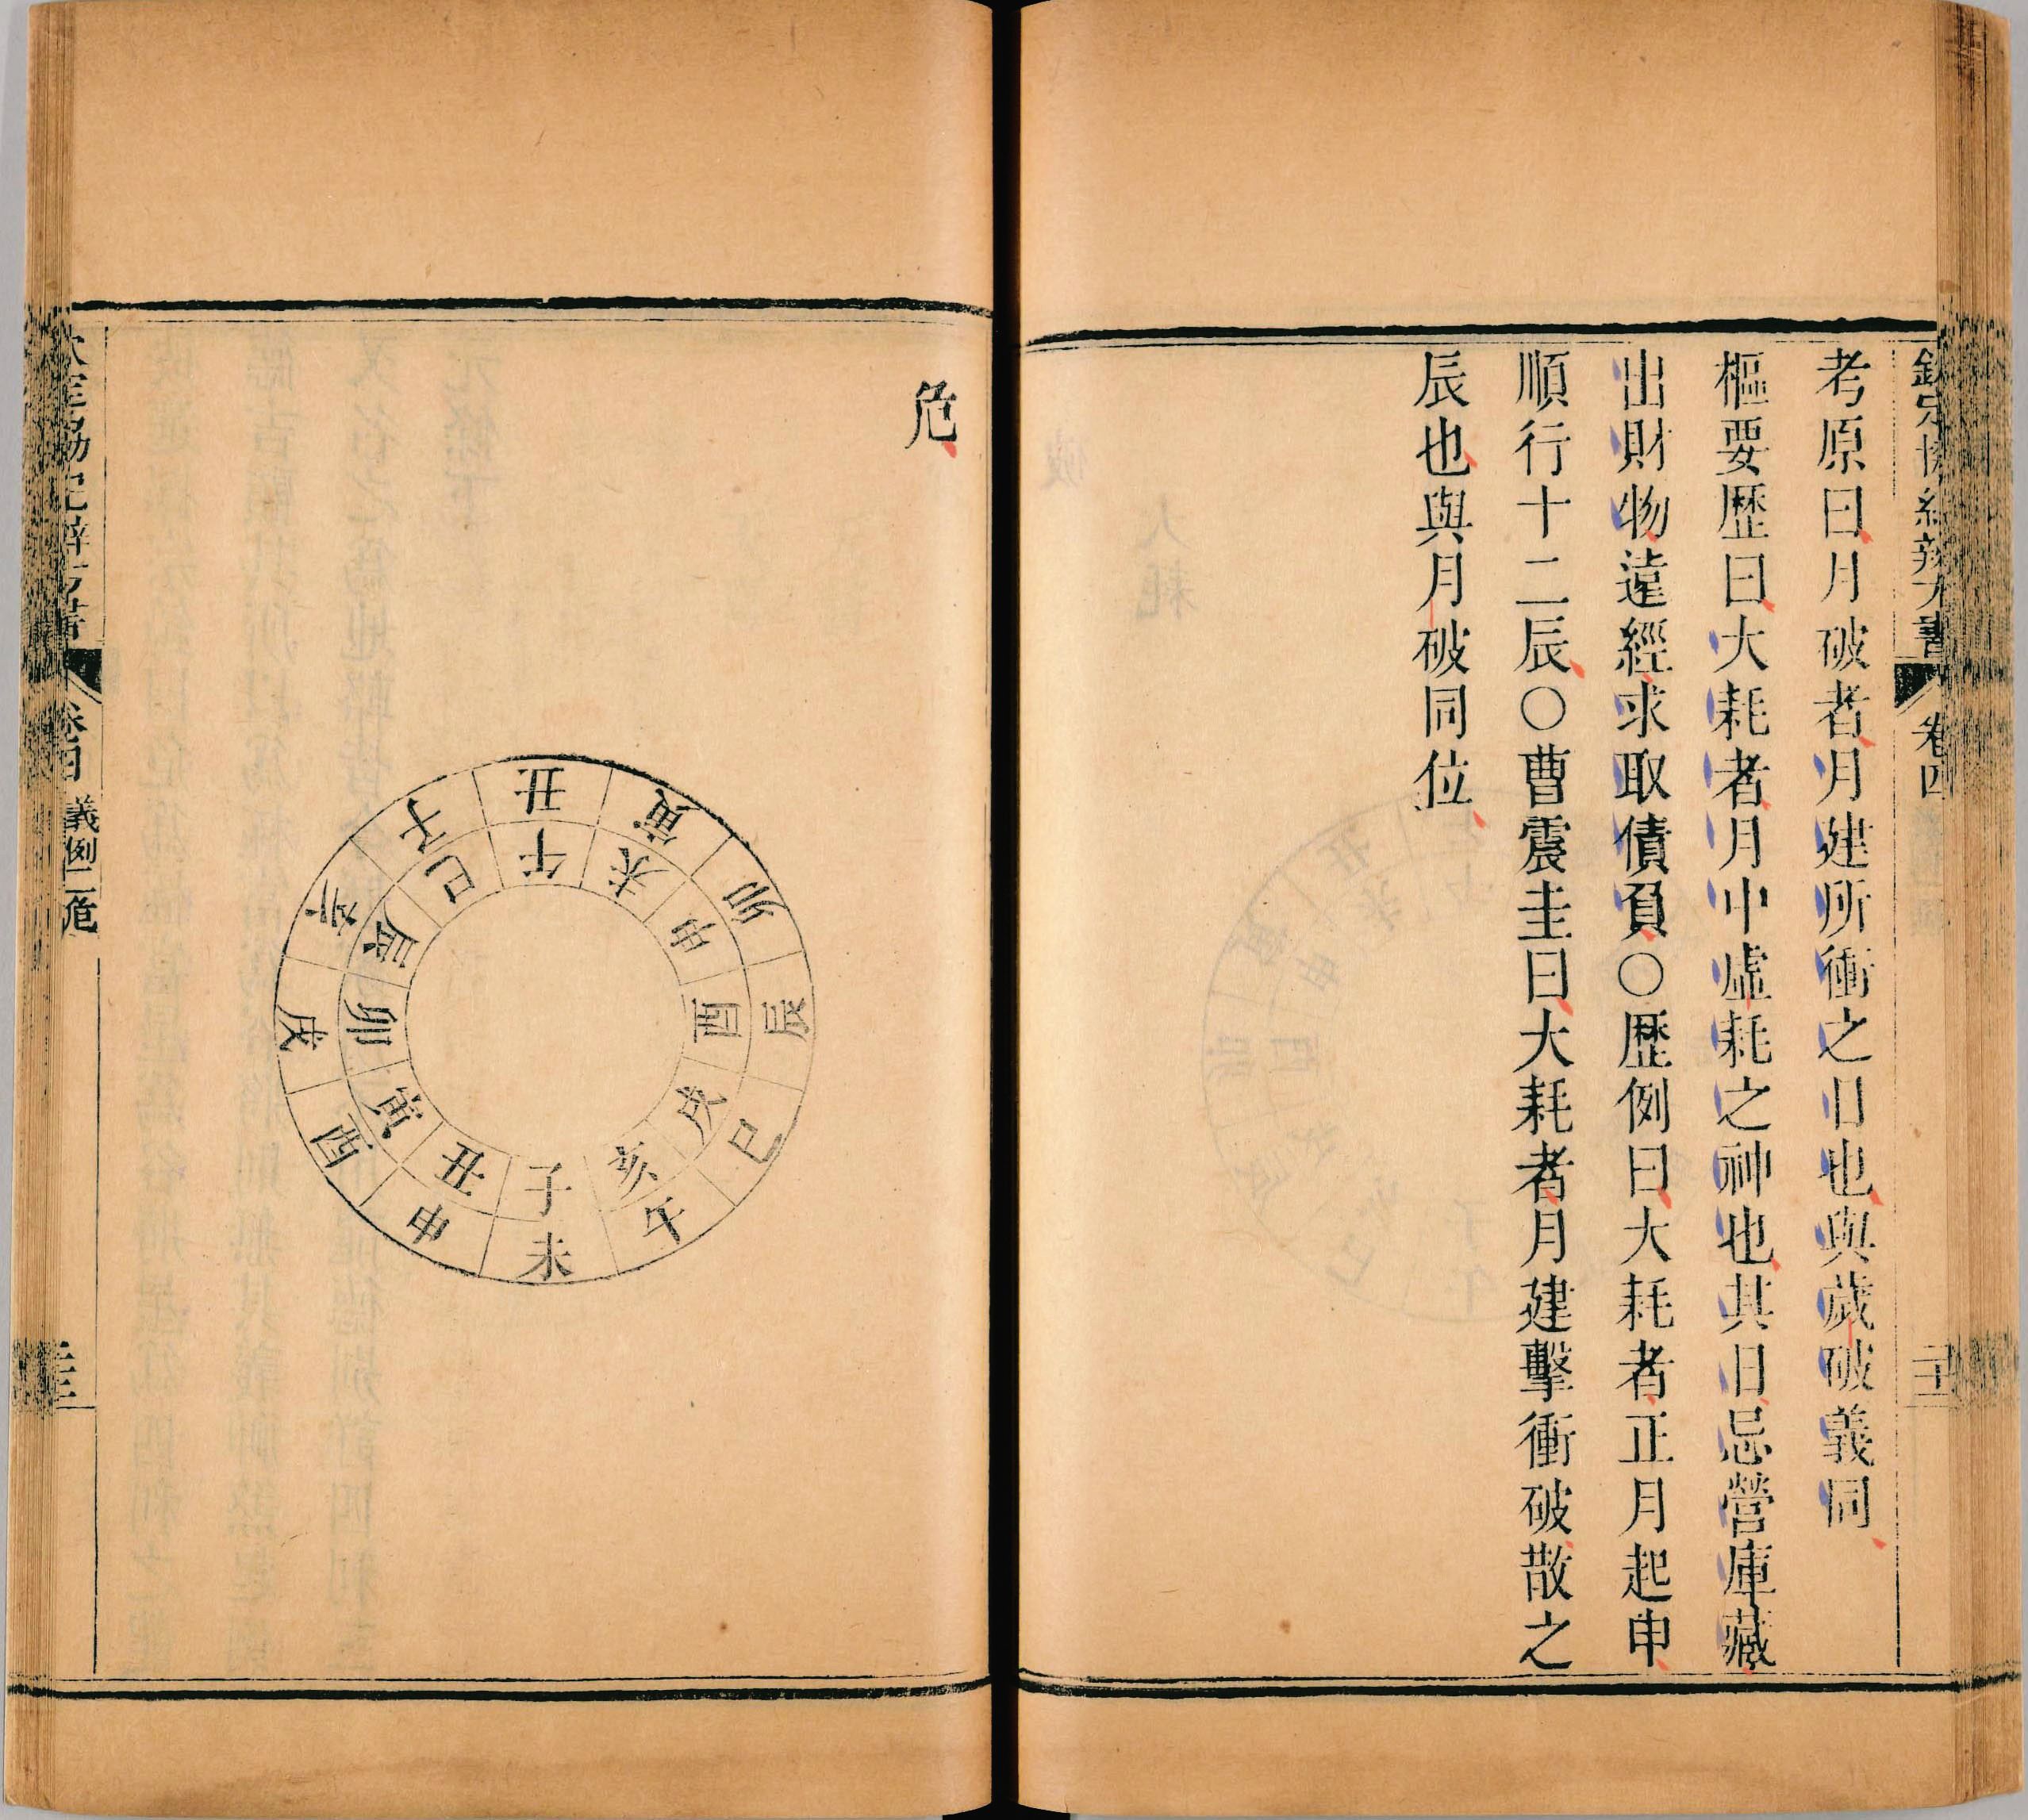 欽定協紀辨方書 卷四
考原曰月破者月建所衝之日也與歲破義同
樞要歷曰大耗者月中虛耗之神也其日忌營庫藏
出財物遠經求取債負○歷例曰大耗者正月起申
順行十二辰○曹震圭曰大耗者月建擊衝破散之
辰也與月破同位
危
丑
寅
卯
辰
巳
午
未
申
酉
戌
亥
子
午
未
申
酉
戌
亥
子
丑
寅
卯
辰
巳
欽定協紀辨方書 卷四 義例二危